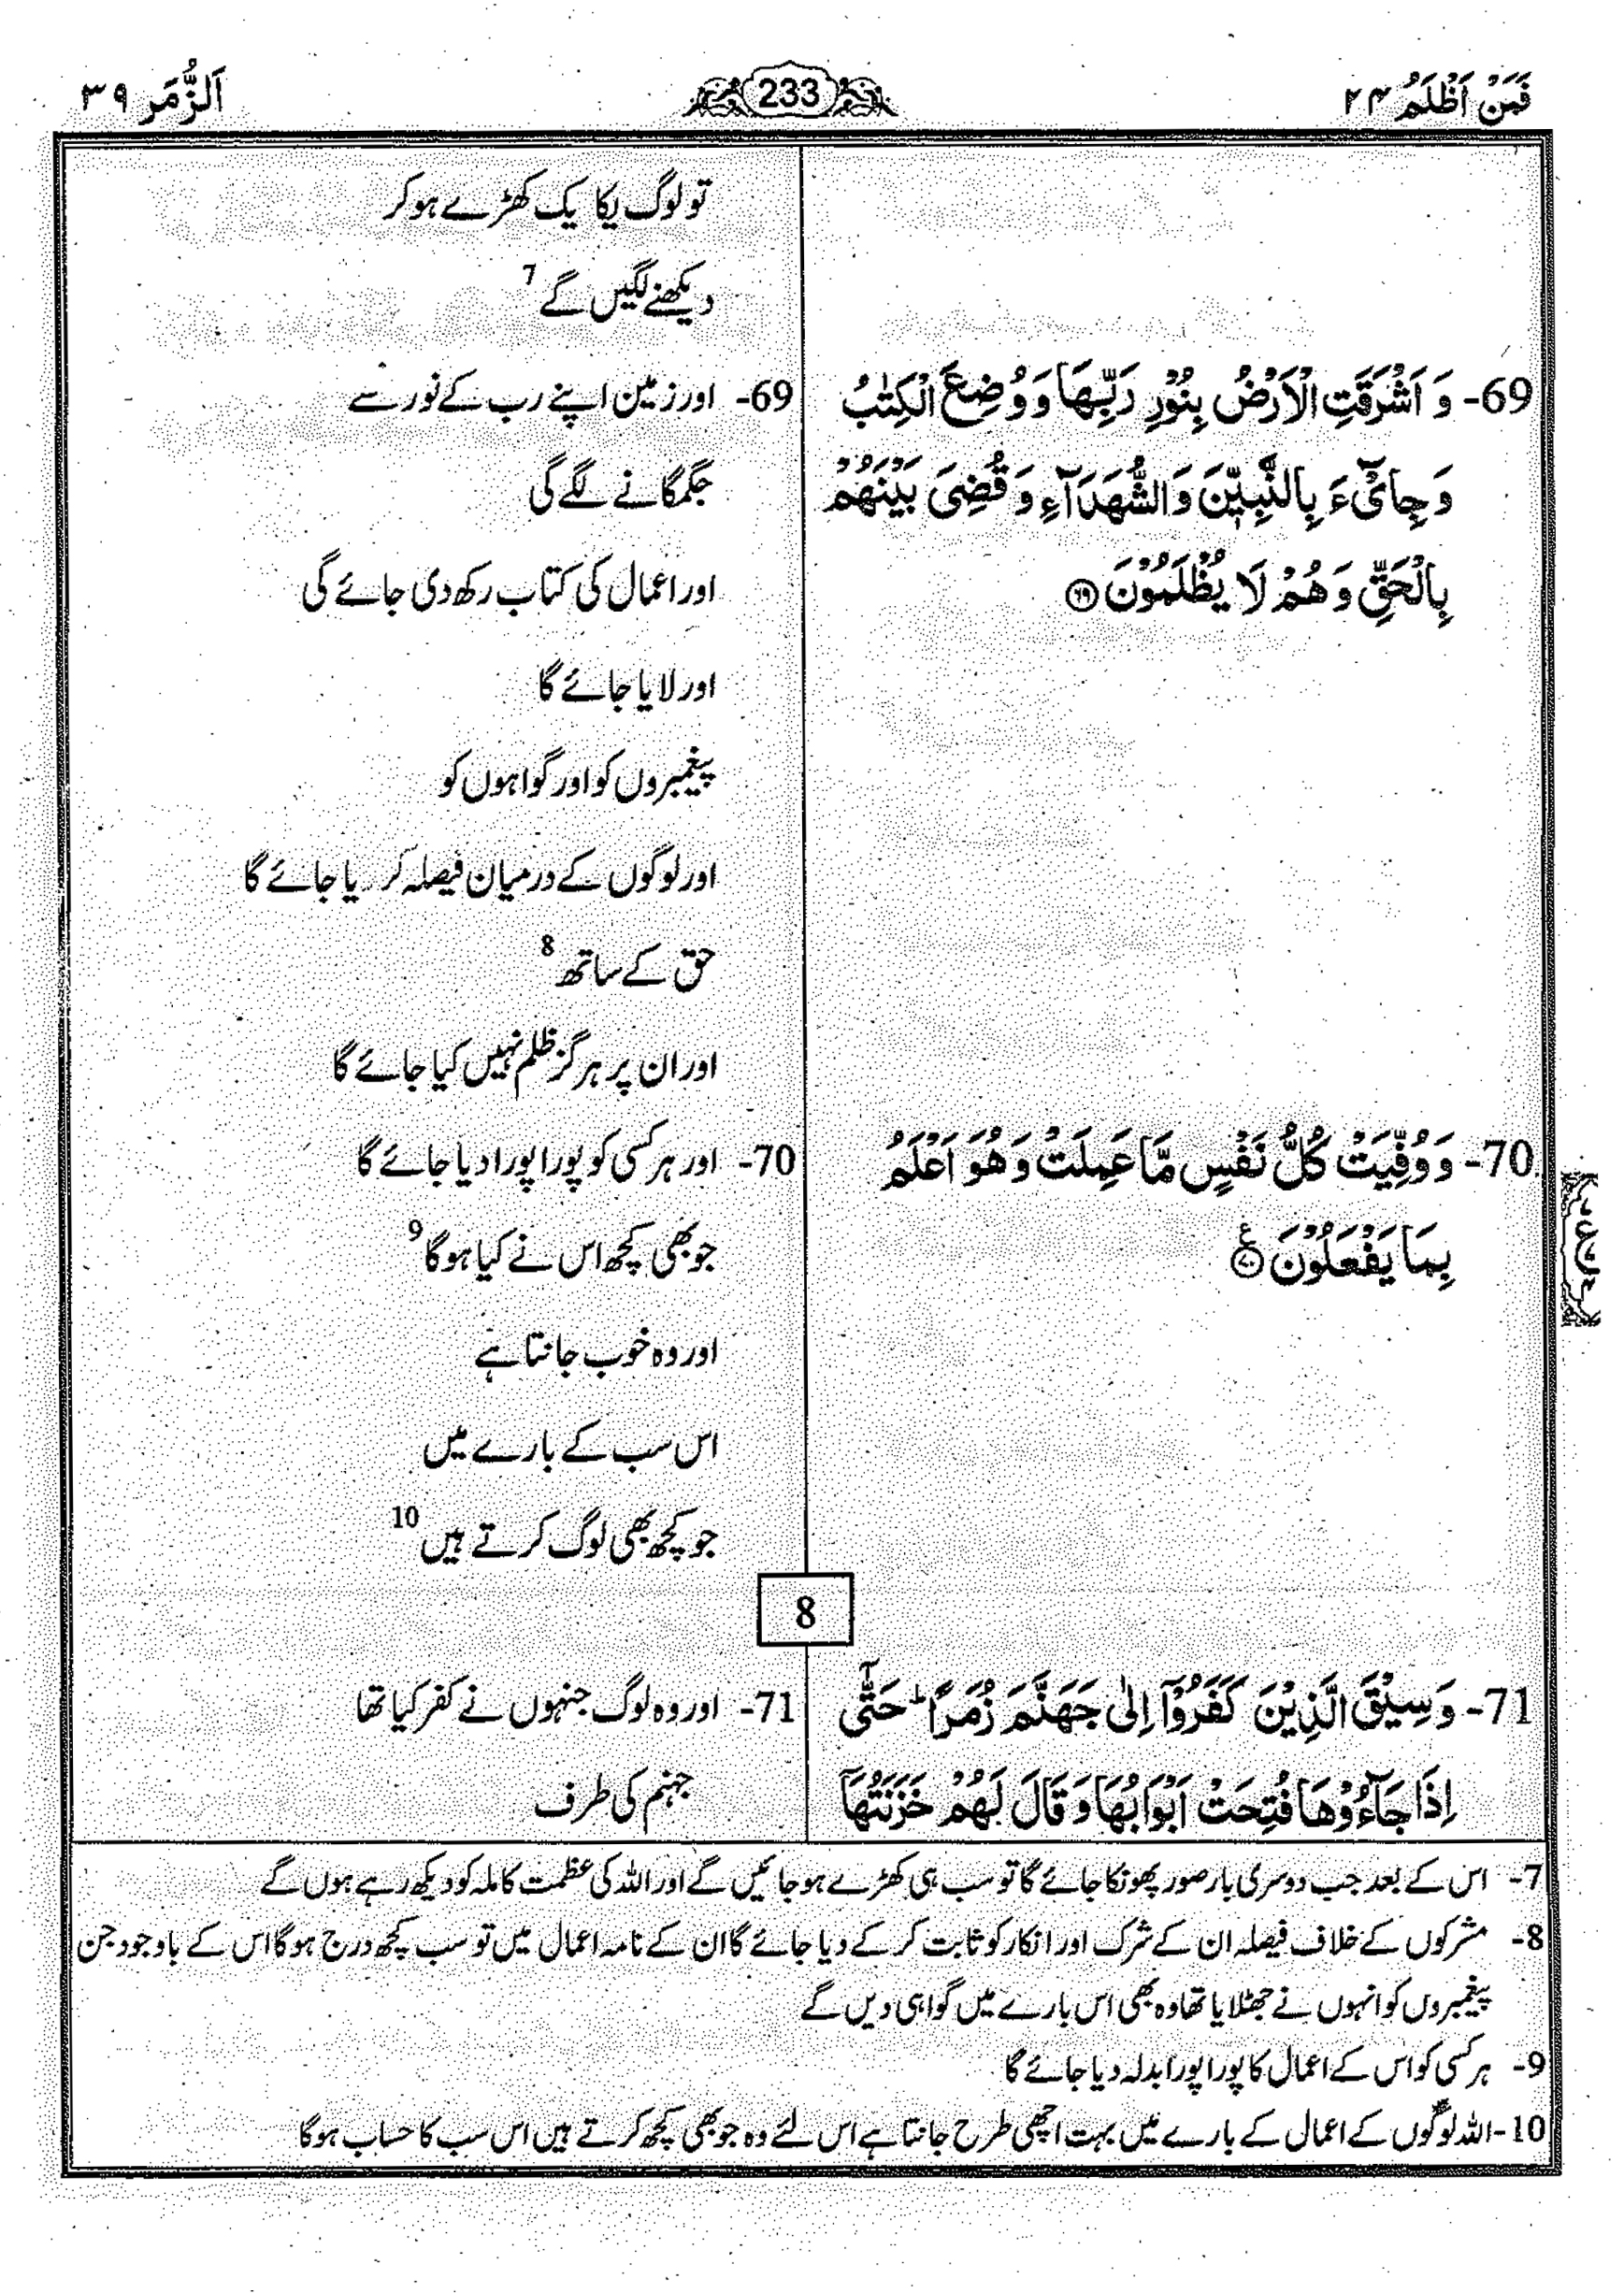 فَمَنْ اَظْلَمُ ۲۴
233
اَلزُّمَر ۳۹
تو لوگ یکا یک کھڑے ہو کر
دیکھنے لگیں گے 7
69- وَ اَشْرَقَتِ الْاَرْضُ بِنُوْرِ رَبِّهَا وَ وُضِعَ الْكِتٰبُ
وَ جِایْٓءَ بِالنَّبِیّٖنَ وَ الشُّهَدَآءِ وَ قُضِیَ بَیْنَهُمْ
بِالْحَقِّ وَ هُمْ لَا یُظْلَمُوْنَ ۶۹
69- اور زمین اپنے رب کے نور سے
جگمگانے لگے گی
اور اعمال کی کتاب رکھ دی جائے گی
اور لایا جائے گا
پیغمبروں کو اور گواہوں کو
اور لوگوں کے درمیان فیصلہ کر یا جائے گا
حق کے ساتھ 8
اور ان پر ہرگز ظلم نہیں کیا جائے گا
70- وَ وُفِّیَتْ كُلُّ نَفْسٍ مَّا عَمِلَتْ وَ هُوَ اَعْلَمُ
بِمَا یَفْعَلُوْنَ ۷۰ ع
70- اور ہر کسی کو پورا پورا دیا جائے گا
جو بھی کچھ اس نے کیا ہوگا 9
اور وہ خوب جانتا ہے
اس سب کے بارے میں
جو کچھ بھی لوگ کرتے ہیں 10
8
71- وَ سِیْقَ الَّذِیْنَ كَفَرُوْۤا اِلٰی جَهَنَّمَ زُمَرًا ؕ حَتّٰۤی
اِذَا جَآءُوْهَا فُتِحَتْ اَبْوَابُهَا وَ قَالَ لَهُمْ خَزَنَتُهَاۤ
71- اور وہ لوگ جنہوں نے کفر کیا تھا
جہنم کی طرف
7- اس کے بعد جب دوسری بار صور پھونکا جائے گا تو سب ہی کھڑے ہو جائیں گے اور اللہ کی عظمت کاملہ کو دیکھ رہے ہوں گے
8- مشرکوں کے خلاف فیصلہ ان کے شرک اور انکار کو ثابت کر کے دیا جائے گا ان کے نامہ اعمال میں تو سب کچھ درج ہوگا اس کے باوجود جن
پیغمبروں کو انہوں نے جھٹلایا تھا وہ بھی اس بارے میں گواہی دیں گے
9- ہر کسی کو اس کے اعمال کا پورا پورا بدلہ دیا جائے گا
10- اللہ لوگوں کے اعمال کے بارے میں بہت اچھی طرح جانتا ہے اس لئے وہ جو بھی کچھ کرتے ہیں اس سب کا حساب ہوگا